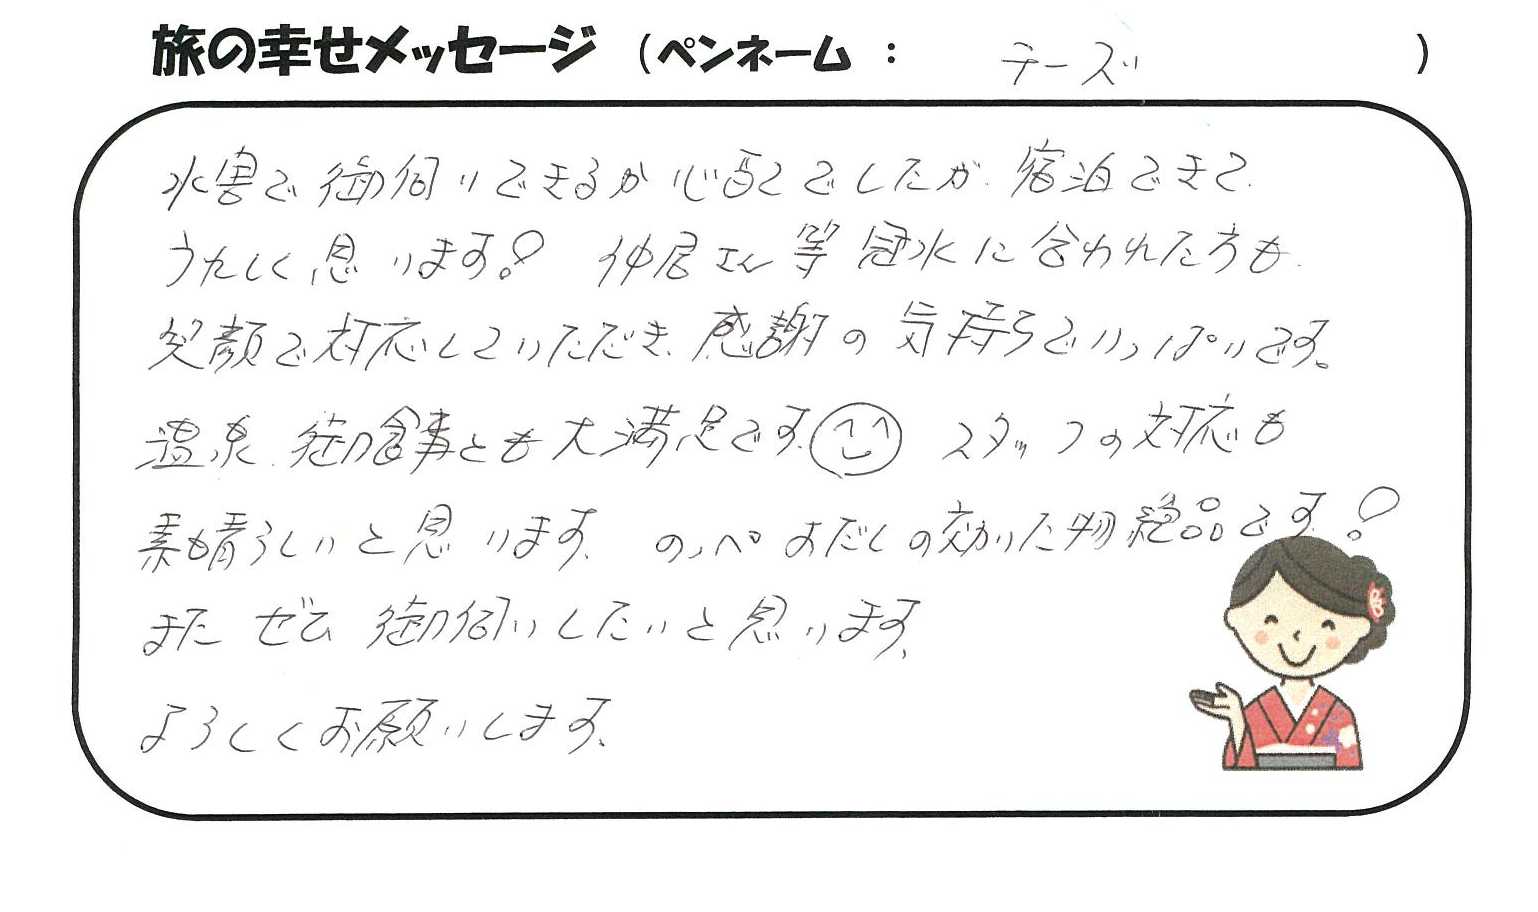 旅の幸せメッセージ (ペンネーム : チーズ )
水害で御伺いできるか心配でしたが宿泊できて
うれしく思います! 仲居さん等冠水に合われた方も
笑顔で対応していただき、感謝の気持ちでいっぱいです。
温泉、御食事とも大満足です スタッフの対応も
素晴らしいと思います。のっぺ おだしの効いた物 絶品です!
また ぜひ 御伺いしたいと思います。
よろしくお願いします。